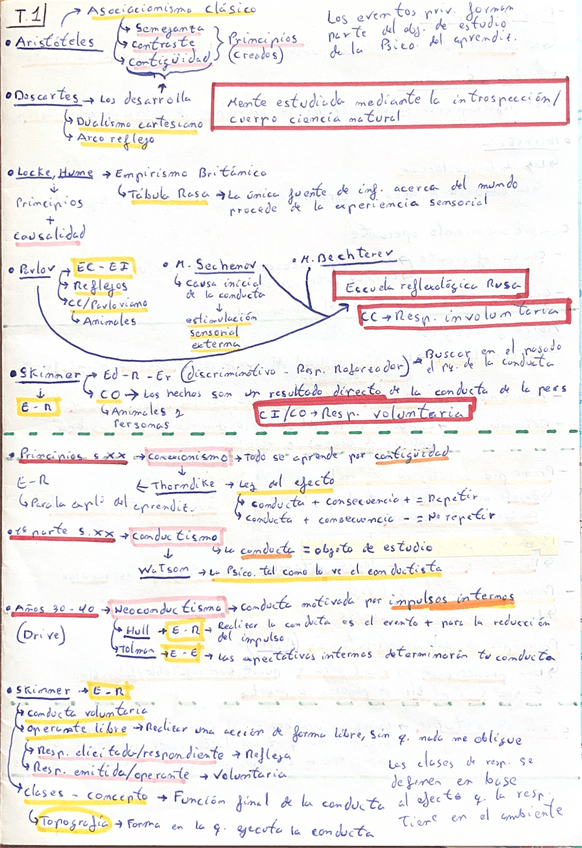 T.1
→ Asociacionismo clásico
• Aristóteles
↳ Semejanza
↳ contraste
↳ contigüidad
Principios
(creados)
Los eventos priv. forman
parte del obj. de estudio
de la Psico. del aprendit.
• Descartes → Los desarrolla
↳ Dualismo cartesiano
↳ Arco reflejo
Mente estudiada mediante la introspección/
cuerpo ciencia natural
• Locke, Hume → Empirismo Británico
↳ Tábula Rasa → La única fuente de inf. acerca del mundo
procede de la experiencia sensorial
↓
Principios
+
causalidad
• Pavlov
→ EC - EI
↳ Reflejos
↳ CC/Pavloviano
↳ Animales
• M. Sechenov
↳ causa inicial
de la conducta
↓
estimulación
sensorial
externa
• M. Bechterev
Escuela reflexológica Rusa
CC → Resp. involuntaria
• Skinner → Ed - R - Er (discriminativo - Resp. Reforzador) → Buscar en el pasado
el pq. de la conducta
↓
E - R
↳ CO → Los hechos son un resultado directo de la conducta de la pers
↳ Animales y
Personas
CI/CO → Resp. voluntaria
• Principios s. XX → Conexionismo → Todo se aprende por contigüidad
E - R
↳ Para la expli. del aprendit.
← Thorndike → Ley del efecto
↳ conducta + consecuencia + = Repetir
↳ conducta + consecuencia - = No repetir
• 1ª parte s. XX → conductismo
↳ la conducta = objeto de estudio
↓
Watsom → La Psico. tal como la ve el conductista
• Años 30-40 → Neoconductismo → conducta motivada por impulsos internos
(Drive)
↳ Hull → E - R → Realizar la conducta es el evento + para la reducción
del impulso
↳ Tolman → E - E → las expectativas internas determinarán tu conducta
• Skinner → E - R
↳ conducta voluntaria
↳ operante libre → Realizar una acción de forma libre, sin q. nada me obligue
↳ Resp. elicitada/respondiente → Refleja
↳ Resp. emitida/operante → Voluntaria
↳ clases - concepto → Función final de la conducta
↳ Topografía → Forma en la q. ejecuta la conducta
Las clases de resp. se
definen en base
al efecto q. la resp.
tiene en el ambiente